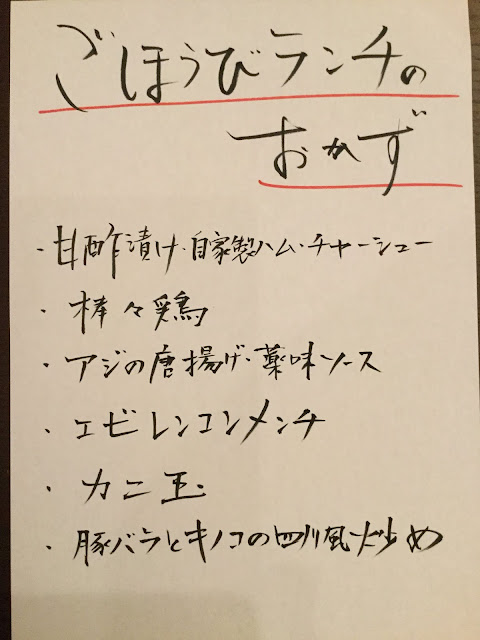 ごほうびランチの
おかず
・甘酢漬け・自家製ハム・チャーシュー
・棒々鶏
・アジの唐揚げ・薬味ソース
・エビレンコンメンチ
・カニ玉
・豚バラとキノコの四川風炒め